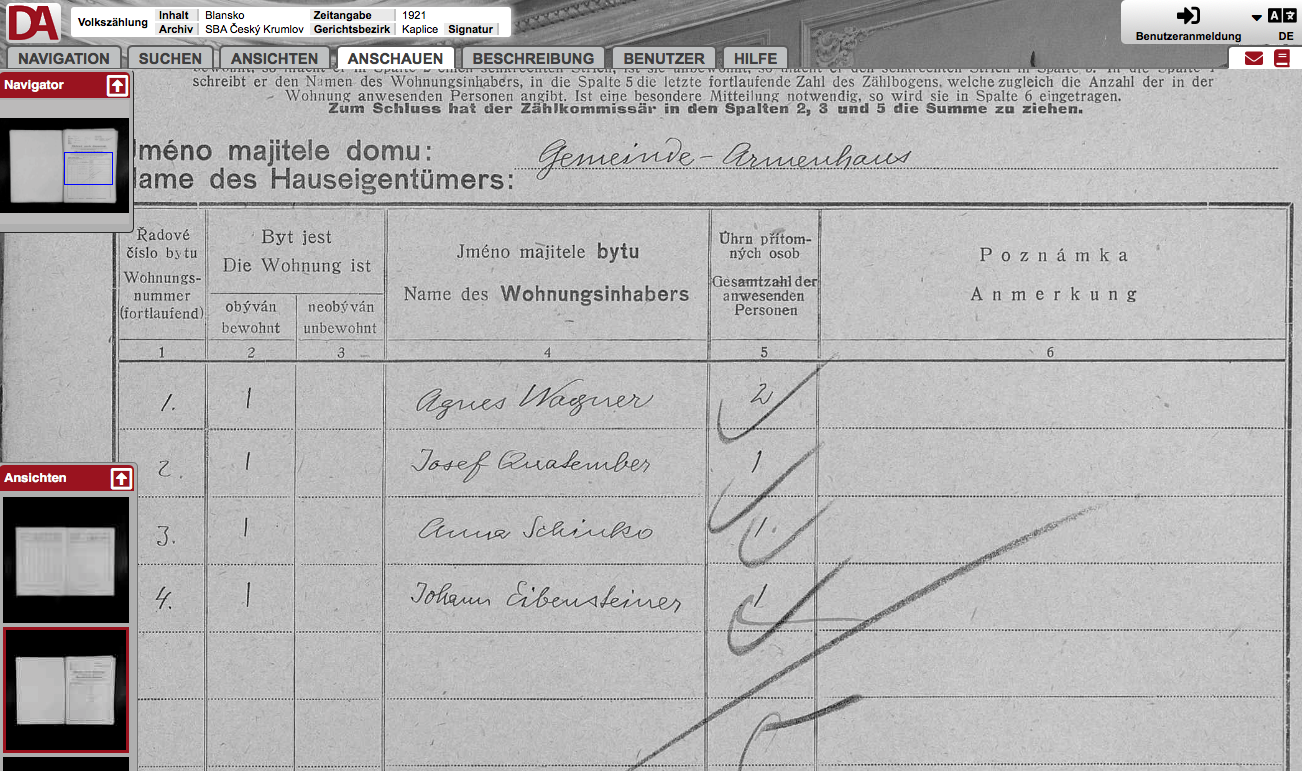 DA
Volkszählung
Inhalt Blansko Zeitangabe 1921
Archiv SBA Český Krumlov Gerichtsbezirk Kaplice Signatur
Benutzeranmeldung
DE
NAVIGATION SUCHEN ANSICHTEN ANSCHAUEN BESCHREIBUNG BENUTZER HILFE
Navigator
schreibt er den Namen des Wohnungsinhabers, in die Spalte 5 die letzte fortlaufende Zahl des Zählbogens, welche zugleich die Anzahl der in der
Wohnung anwesenden Personen angibt. Ist eine besondere Mitteilung notwendig, so wird sie in Spalte 6 eingetragen.
Zum Schluss hat der Zählkommissär in den Spalten 2, 3 und 5 die Summe zu ziehen.
Jméno majitele domu:
Name des Hauseigentümers:
Gemeinde-Armenhaus
Řadové číslo bytu
Wohnungs-nummer (fortlaufend)
Byt jest
Die Wohnung ist
obýván
bewohnt
neobýván
unbewohnt
Jméno majitele bytu
Name des Wohnungsinhabers
Úhrn přítom-
ných osob
Gesamtzahl der
anwesenden
Personen
Poznámka
Anmerkung
1 2 3 4 5 6
1. 1 Agnes Wagner 2
2. 1 Josef Quatember 1
3. 1 Anna Schinko 1.
4. 1 Johann Eibensteiner 1
Ansichten